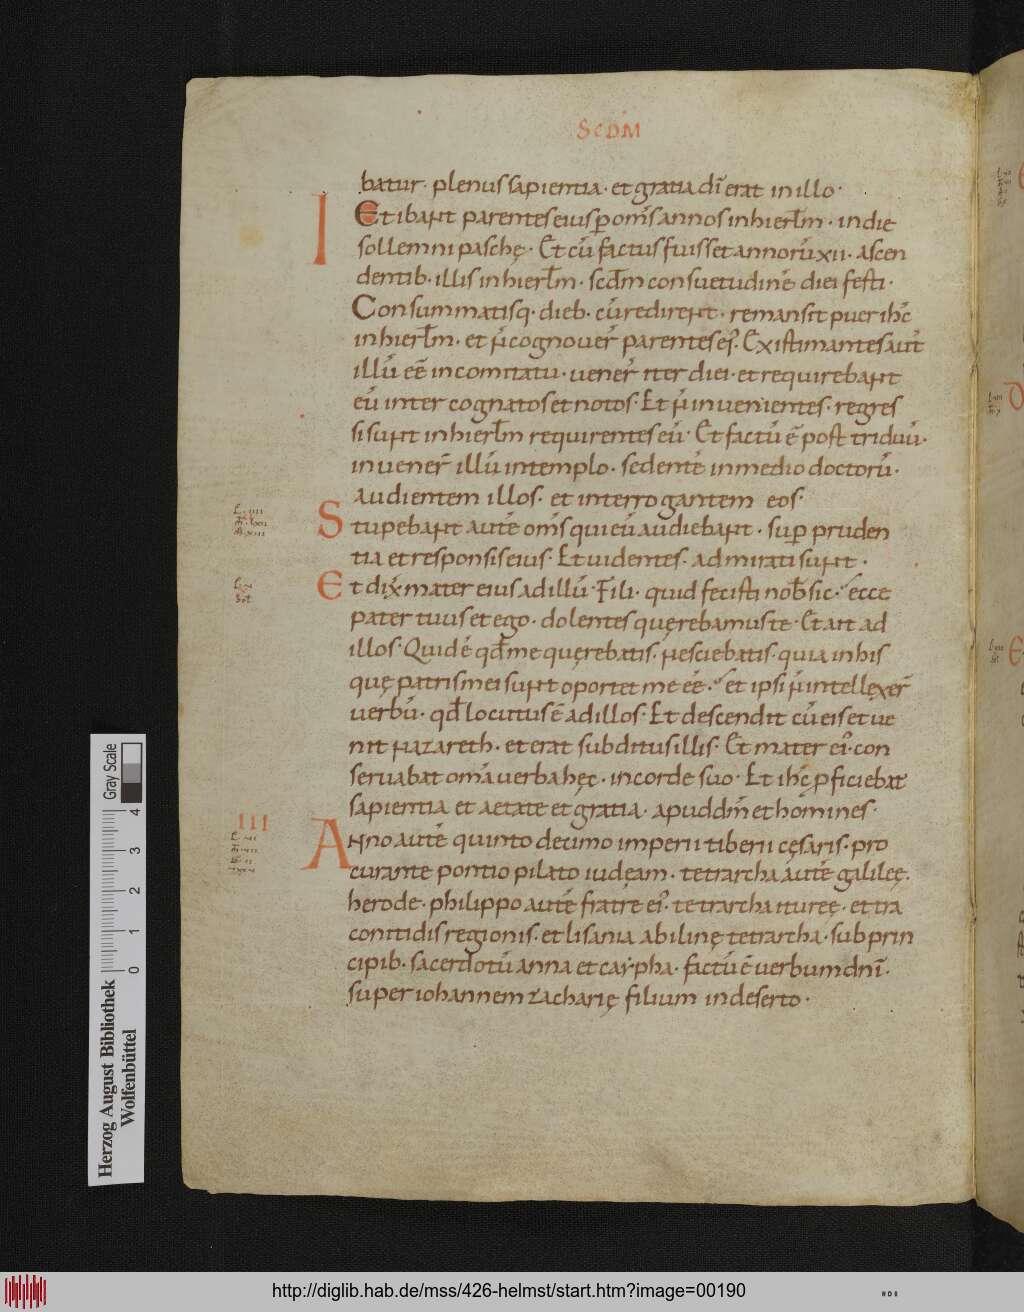 SCDM
batur· plenus sapientia· et gratia dī erat in illo·
I
Et ibant parentes eius ꝑ om̄s annos in hierl̄m· in die
sollemni paschę· Et cū factus fuisset annorū xii· ascen
dentib· illis in hierl̄m· scd̄m consuetudinē diei festi·
Consummatisq· dieb· cū redirent· remansit puer ihc̄
in hierl̄m· et n̄ cognouer̄ parentes ei᾽· Existimantes aut̄
illū eē in comitatu· uener̄ iter diei· et requirebant
eū inter cognatos et notos· Et n̄ inuenientes· regres
si sunt in hierl̄m requirentes eū· Et factū ē post triduū·
inuener̄ illū in templo· sedentē in medio doctorū·
audientem illos· et interrogantem eos·
Stupebant autē om̄s qui eū audiebant· suꝑ pruden
tia et responsis eius· Et uidentes· admirati sunt·
Et dix̄ mater eius ad illū· Fili· quid fecisti nob̄ sic· ecce
pater tuus et ego· dolentes quęrebamus te· Et ait ad
illos· Quid ē qd̄ me quęrebatis· nesciebatis· quia in his
quę patris mei sunt oportet me eē· et ipsi n̄ intellęxer̄
uerbū· qd̄ locutus ē ad illos· Et descendit cū eis et ue
nit nazareth· et erat subditus illis· Et mater ei᾽· con
seruabat om̄a uerba hęc· in corde suo· Et ihc̄ ꝓficiebat
sapientia et aetate et gratia· apud dm̄ et homines·
III
Anno autē quinto decimo imperii tiberii cęsaris· pro
curante pontio pilato iudęam· tetrarcha autē galileę·
herode· philippo autē fratre ei᾽· tetrarcha itureę· et tra
conitidis regionis· et lisania abilinę tetrarcha· sub prin
cipib· sacerdotū anna et caypha· factū ē uerbum dnī·
super iohannem zacharię filium in deserto·
Gray Scale
4
3
2
1
0
Herzog August Bibliothek
Wolfenbüttel
http://diglib.hab.de/mss/426-helmst/start.htm?image=00190